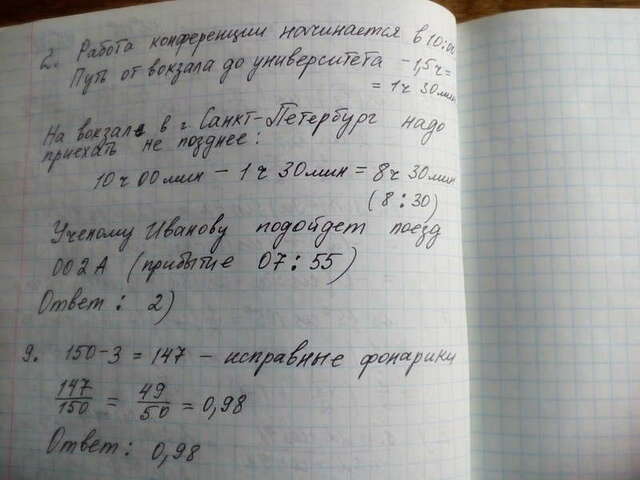 2. Работа конференции начинается в 10:00
Путь от вокзала до университета - 1,5ч=
= 1ч 30мин
На вокзале в г Санкт-Петербург надо
приехать не позднее:
10ч 00мин - 1ч 30мин = 8ч 30мин
(8:30)
Ученому Иванову подойдет поезд
002А (прибытие 07:55)
Ответ: 2)
9. 150-3 = 147 - исправные фонарики
147/150 = 49/50 = 0,98
Ответ: 0,98